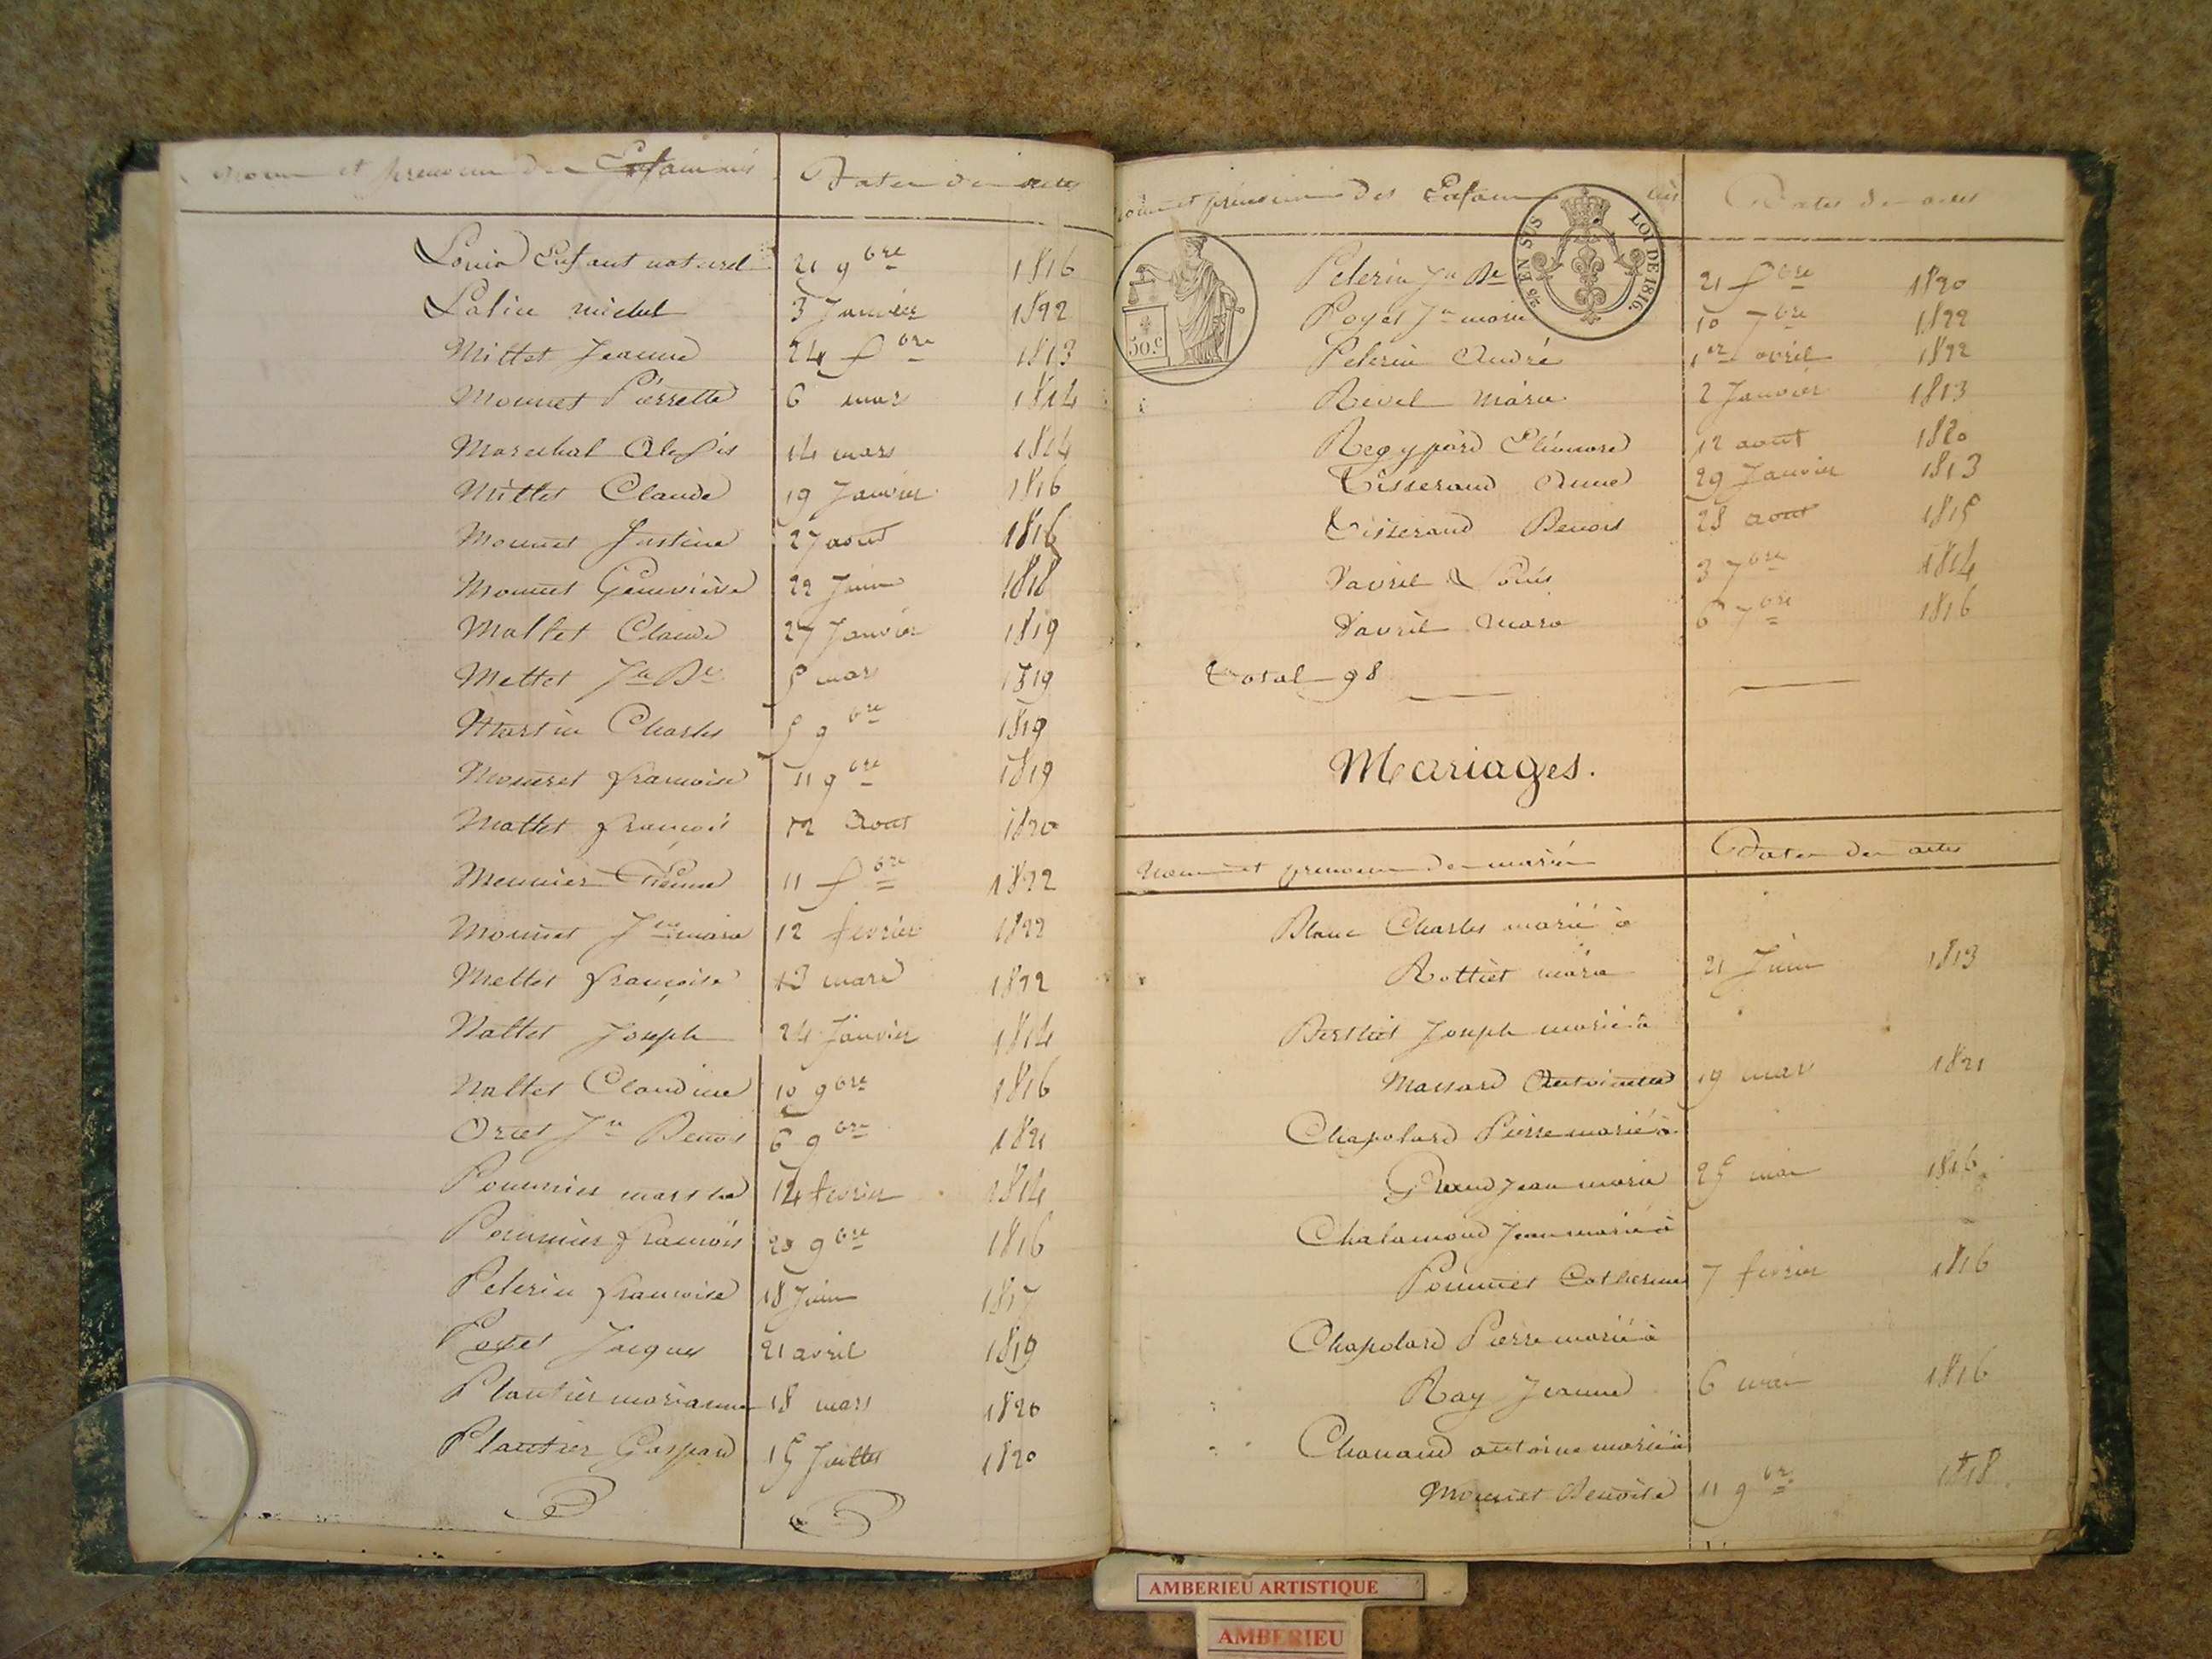 Noms et prenoms des Enfans nés Dates des actes
Louis Enfant naturel 21 9bre 1816
Lalive michel 3 Janvier 1822
Millet Jeanne 24 bre 1813
Monnet Pierrette 6 mars 1814
Marechal Alexis 14 mars 1814
Millet Claude 19 Janvier 1816
Monnet Justine 27 aout 1816
Monnet Geneviève 22 Juin 1818
Mallet Claude 27 Janvier 1819
Mettet Jn Bte 5 mars 1819
Martin Charles 5 9bre 1819
Monnet francoise 11 9bre 1819
Mallet françois 12 Aout 1820
Meunier 11 bre 1822
Monnet Jne marie 12 fevrier 1822
Mettet françoise 13 mars 1822
Nallet Joseph 24 Janvier 1814
Nallet Claudine 10 9bre 1816
Orset Jn Benoit 6 9bre 1821
Pommier marthe 14 fevrier 1814
Pommier francois 20 9bre 1816
Pelerin francoise 18 Juin 1817
Poyet Jacques 21 avril 1819
Plantier marianne 18 mars 1820
Plantier Gaspard 15 Juillet 1820
Noms et prenoms des Enfans nés Dates des actes
2/5 EN SUS LOI DE 1816.
50.c
Pelerin Jn Bte 21 bre 1820
Poyet Jn marie 10 7bre 1822
Pelerin André 1er avril 1822
Revel Marie 2 Janvier 1813
Eléonore 12 aout 1820
Tisserand Anne 29 Janvier 1813
Tisserand Benoit 28 aout 1815
Davril Louis 3 7bre 1814
Davril Marc 6 7bre 1816
Total 98
Mariages.
Noms et prenoms des mariés Dates des actes
Blanc Charles marié à
Rottiet marie 21 Juin 1813
Berthet Joseph marié à
Massard Antoinette 19 mars 1821
Chapolard Pierre marié à
Grand Jean marie 25 mai 1816
Chalamond Jean marié à
Pommet Catherine 7 fevrier 1816
Chapolard Pierre marié à
Ray Jeanne 6 mai 1816
Chanand antoine marié à
Monnet Benoite 11 9bre 1818
AMBERIEU ARTISTIQUE
AMBERIEU